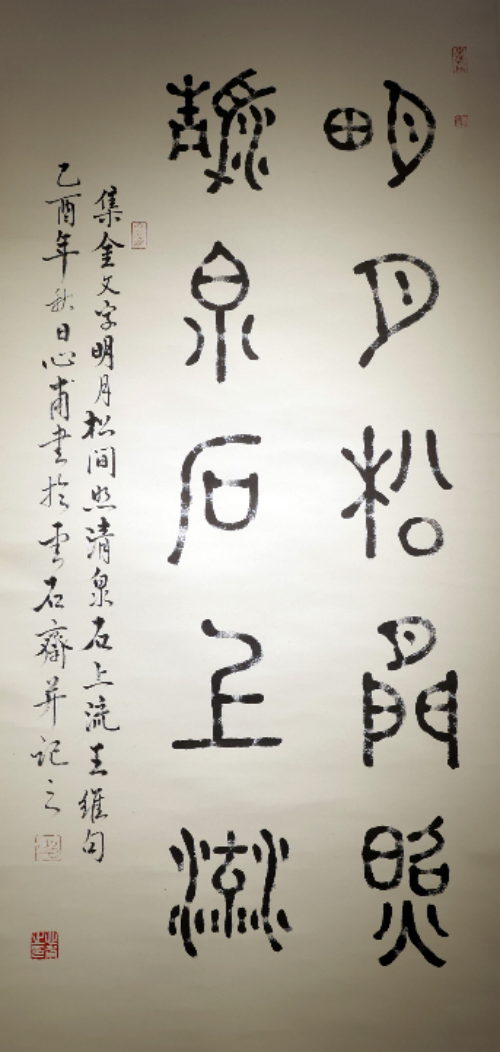 明月松間照
清泉石上流
集金文字明月松間照清泉石上流王維句
乙酉年秋日心甫書於雲石齋并記之